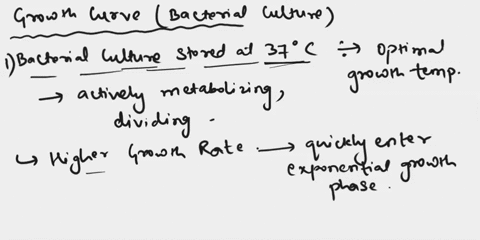 Growth Curve (Bacterial Culture)
1) Bacterial Culture stored at 37°C ÷ Optimal
growth temp.
→ actively metabolizing,
dividing.
↳ Higher Growth Rate → quickly enter
exponential growth
phase.